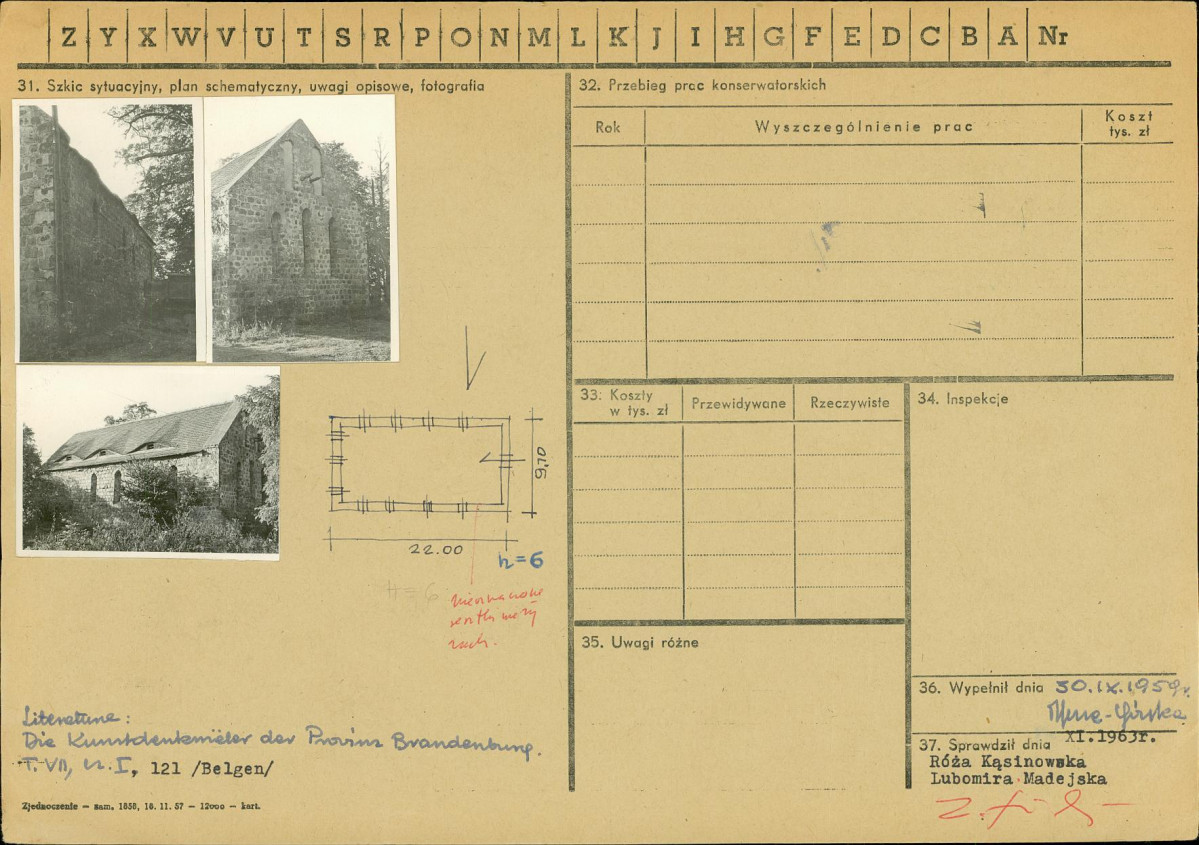 Z Y X W V U T S R P O N M L K J I H G F E D C B A Nr
31. Szkic sytuacyjny, plan schematyczny, uwagi opisowe, fotografia
9,10
22.00
h=6
H=6
Literatura:
Die Kunstdenkmäler der Provinz Brandenburg.
T. VII, cz. I, 121 /Belgen/
Zjednoczenie — zam. 1858, 18. 11. 57 — 12000 — kart.
32. Przebieg prac konserwatorskich
Rok
Wyszczególnienie prac
Koszt
tys. zł
33. Koszty
w tys. zł
Przewidywane
Rzeczywiste
34. Inspekcje
35. Uwagi różne
36. Wypełnił dnia 30.IX.1959r.
37. Sprawdził dnia XI.1963r.
Róża Kąsinowska
Lubomira Madejska